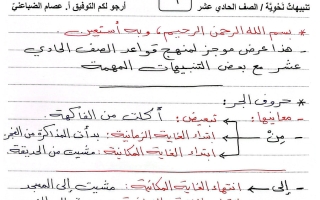 تنبيهاتٌ نَحْويّة / الصف الحادي عشر
١
أرجو لكم التوفيق أ. عصام الضباعني
* بسم الله الرحمن الرحيم، وبه أستعين.
- هذا عرض موجز لمنهج قواعد الصف الحادي
عشر مع بعض التنبيهات المهمة
* حروف الجر:
- معانيها:
- مِنْ
تبعيض: أكلت من الفاكهة
ابتداء الغاية الزمانية: بدأت المذاكرة من الفجر
ابتداء الغاية المكانية: مشيت من الحديقة
- إلى ← انتهاء الغاية المكانية: مشيت إلى المسجد